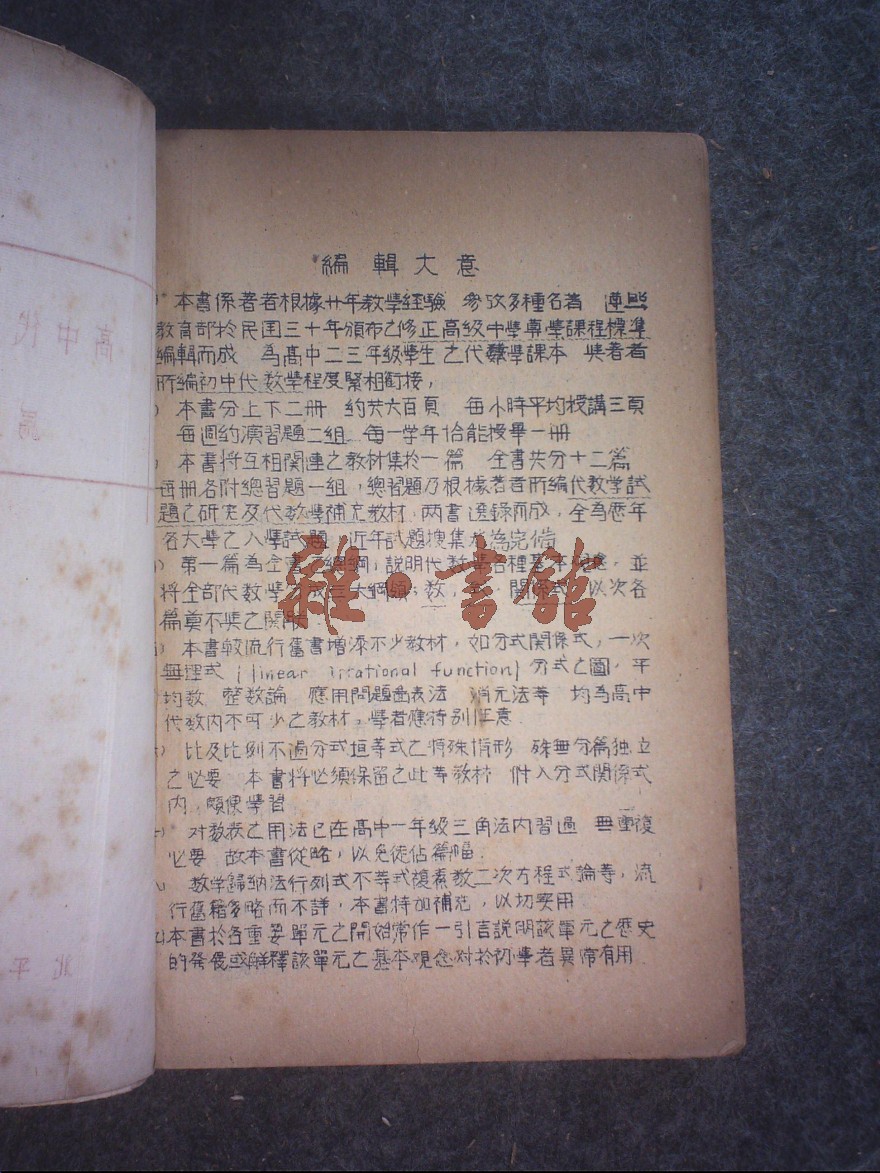 編輯大意
本書係著者根據廿年教學經驗 參攷多種名著 遵照
教育部於民国三十年頒布之修正高級中學算學課程標準
編輯而成 為高中二三年級學生之代數學課本 與著者
所編初中代数學程度緊相銜接,
本書分上下二冊 約共六百頁 每小時平均授講三頁
每週約演習題二組 每一学年恰能授畢一册
本書将互相関連之教材集於一篇 全書共分十二篇
每冊各附總習題一組,總習題乃根據著者所編代数学試
題之研究及代数學補充教材,两書選録而成,全為歷年
各大學之入學試題,近年試題搜集尤為完備
第一篇為全書之總綱,說明代數學各種基本观念,並
将全部代数學分成三大綱領:数,式,関係式,以次各
篇莫不與之関
本書較流行舊書增添不少教材,如分式関係式,一次
無理式 (linear irrational function) 分式之圖,平
均数 整数論 應用問題圖表法 消元法等 均為高中
代数内不可少之教材,學者應特别注意.
比及比例不過分式恒等式之特殊情形 殊無分篇独立
之必要 本書将必須保留之此等教材 併入分式関係式
内,頗便學習
对数表之用法已在高中一年級三角法内習過 無重複
必要 故本書從略,以免徒佔篇幅.
数学歸納法行列式不等式複素数二次方程式論等,流
行舊籍多略而不詳,本書特加補充,以切実用
本書於各重要單元之開始常作一引言說明該單元之歷史
的發展或解釋該單元之基本观念对於初學者異常有用
雜·書館
高中代